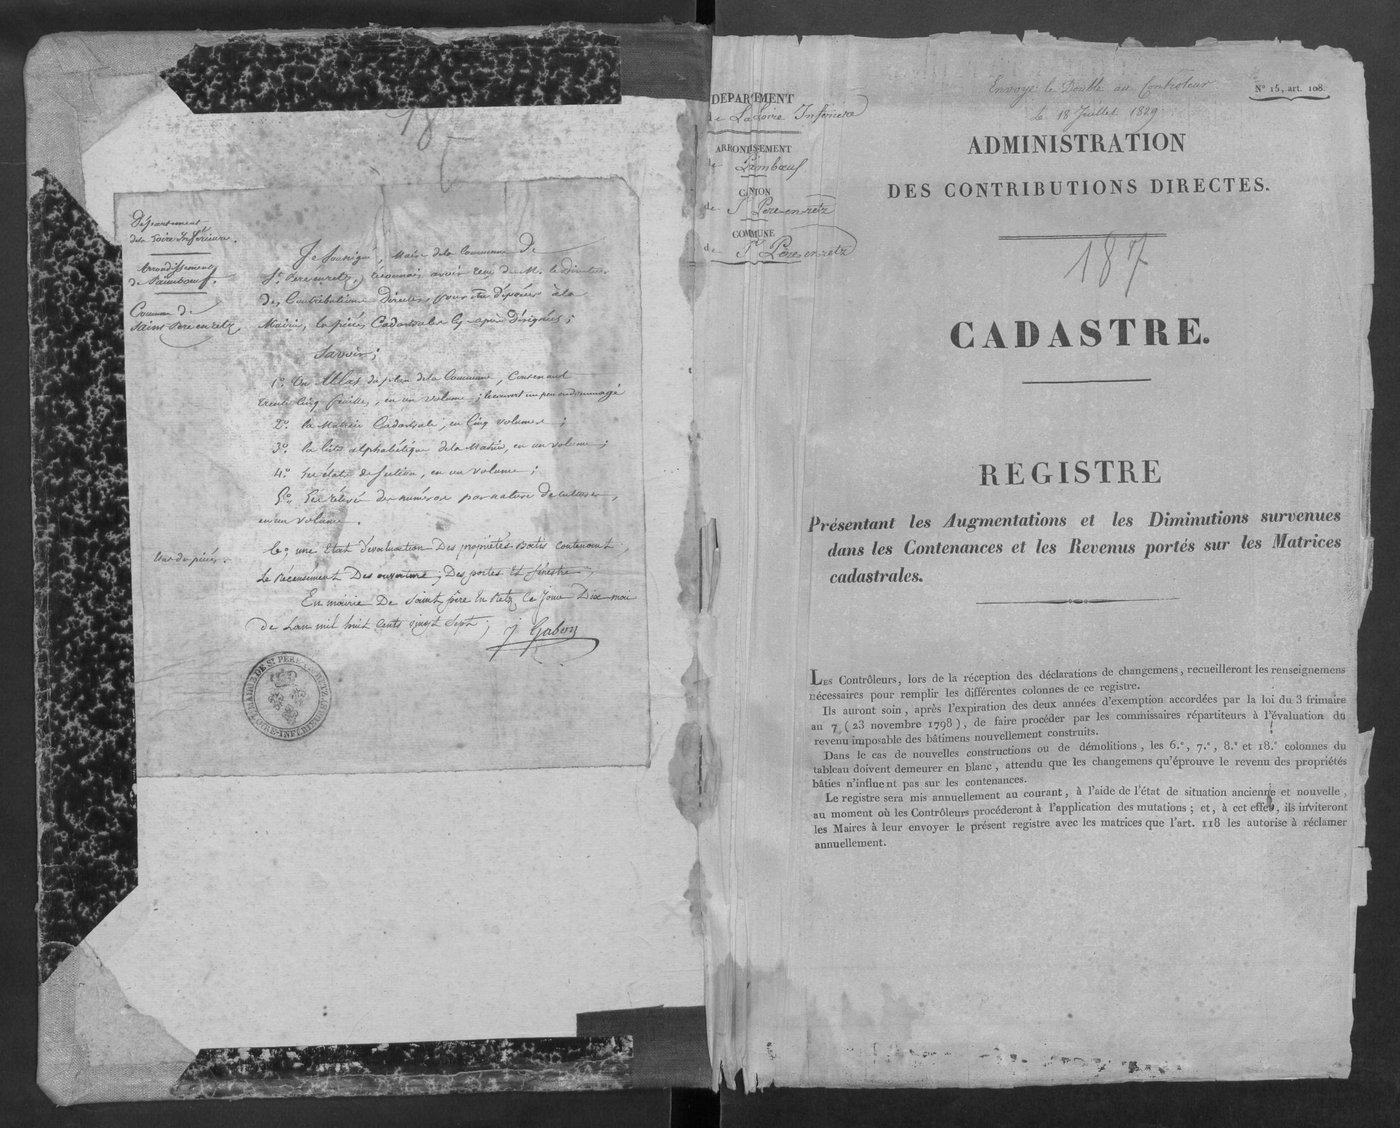 Département
de la Loire Inférieure.
Arrondissement
de Paimboeuf.
Commune de
Saint Pere en retz
Je Soussigné, Maire de la Commune de
St. Pere en retz, reconnais avoir reçu de M. le Directeur
des Contributions Directes, pour être déposées à la
Mairie, les pièces Cadastrales ci-après désignées;
Savoir;
1.° Un Atlas du plan de la Commune, Contenant
trente cinq feuilles, en un volume; le couvert un peu endommagé
2.° la Matrice Cadastrale, en Cinq volumes;
3.° la liste alphabétique de la Matrice, en un volume;
4.° les états de Section, en un volume;
5.° Le relevé des numéros par nature de culture,
en un volume.
6.° une Etat d'évaluation Des propriétés Baties contenant
Le Recensement Des ouverture, Des portes Et fenestre
En mairie De Saint père En Retz Ce Jour Dix mai
De Lan mil huit Cents vingt Sept; J Gabory
MAIRIE DE ST PERE-EN-RETZ
LOIRE-INFÉRIEURE
Envoyé le Double au Controleur
le 18 Juillet 1829
N° 15, art. 108.
DÉPARTEMENT
de La Loire Inférieure
ARRONDISSEMENT
de Paimboeuf
CANTON
de St Pere en retz
COMMUNE
de St Pere en retz
ADMINISTRATION
DES CONTRIBUTIONS DIRECTES.
CADASTRE.
REGISTRE
Présentant les Augmentations et les Diminutions survenues
dans les Contenances et les Revenus portés sur les Matrices
cadastrales.
LES Contrôleurs, lors de la réception des déclarations de changemens, recueilleront les renseignemens
nécessaires pour remplir les différentes colonnes de ce registre.
Ils auront soin, après l'expiration des deux années d'exemption accordées par la loi du 3 frimaire
an 7 (23 novembre 1798), de faire procéder par les commissaires répartiteurs à l'évaluation du
revenu imposable des bâtimens nouvellement construits.
Dans le cas de nouvelles constructions ou de démolitions, les 6.e, 7.e, 8.e et 18.e colonnes du
tableau doivent demeurer en blanc, attendu que les changemens qu'éprouve le revenu des propriétés
bâties n'influent pas sur les contenances.
Le registre sera mis annuellement au courant, à l'aide de l'état de situation ancienne et nouvelle,
au moment où les Contrôleurs procéderont à l'application des mutations; et, à cet effet, ils inviteront
les Maires à leur envoyer le présent registre avec les matrices que l'art. 118 les autorise à réclamer
annuellement.